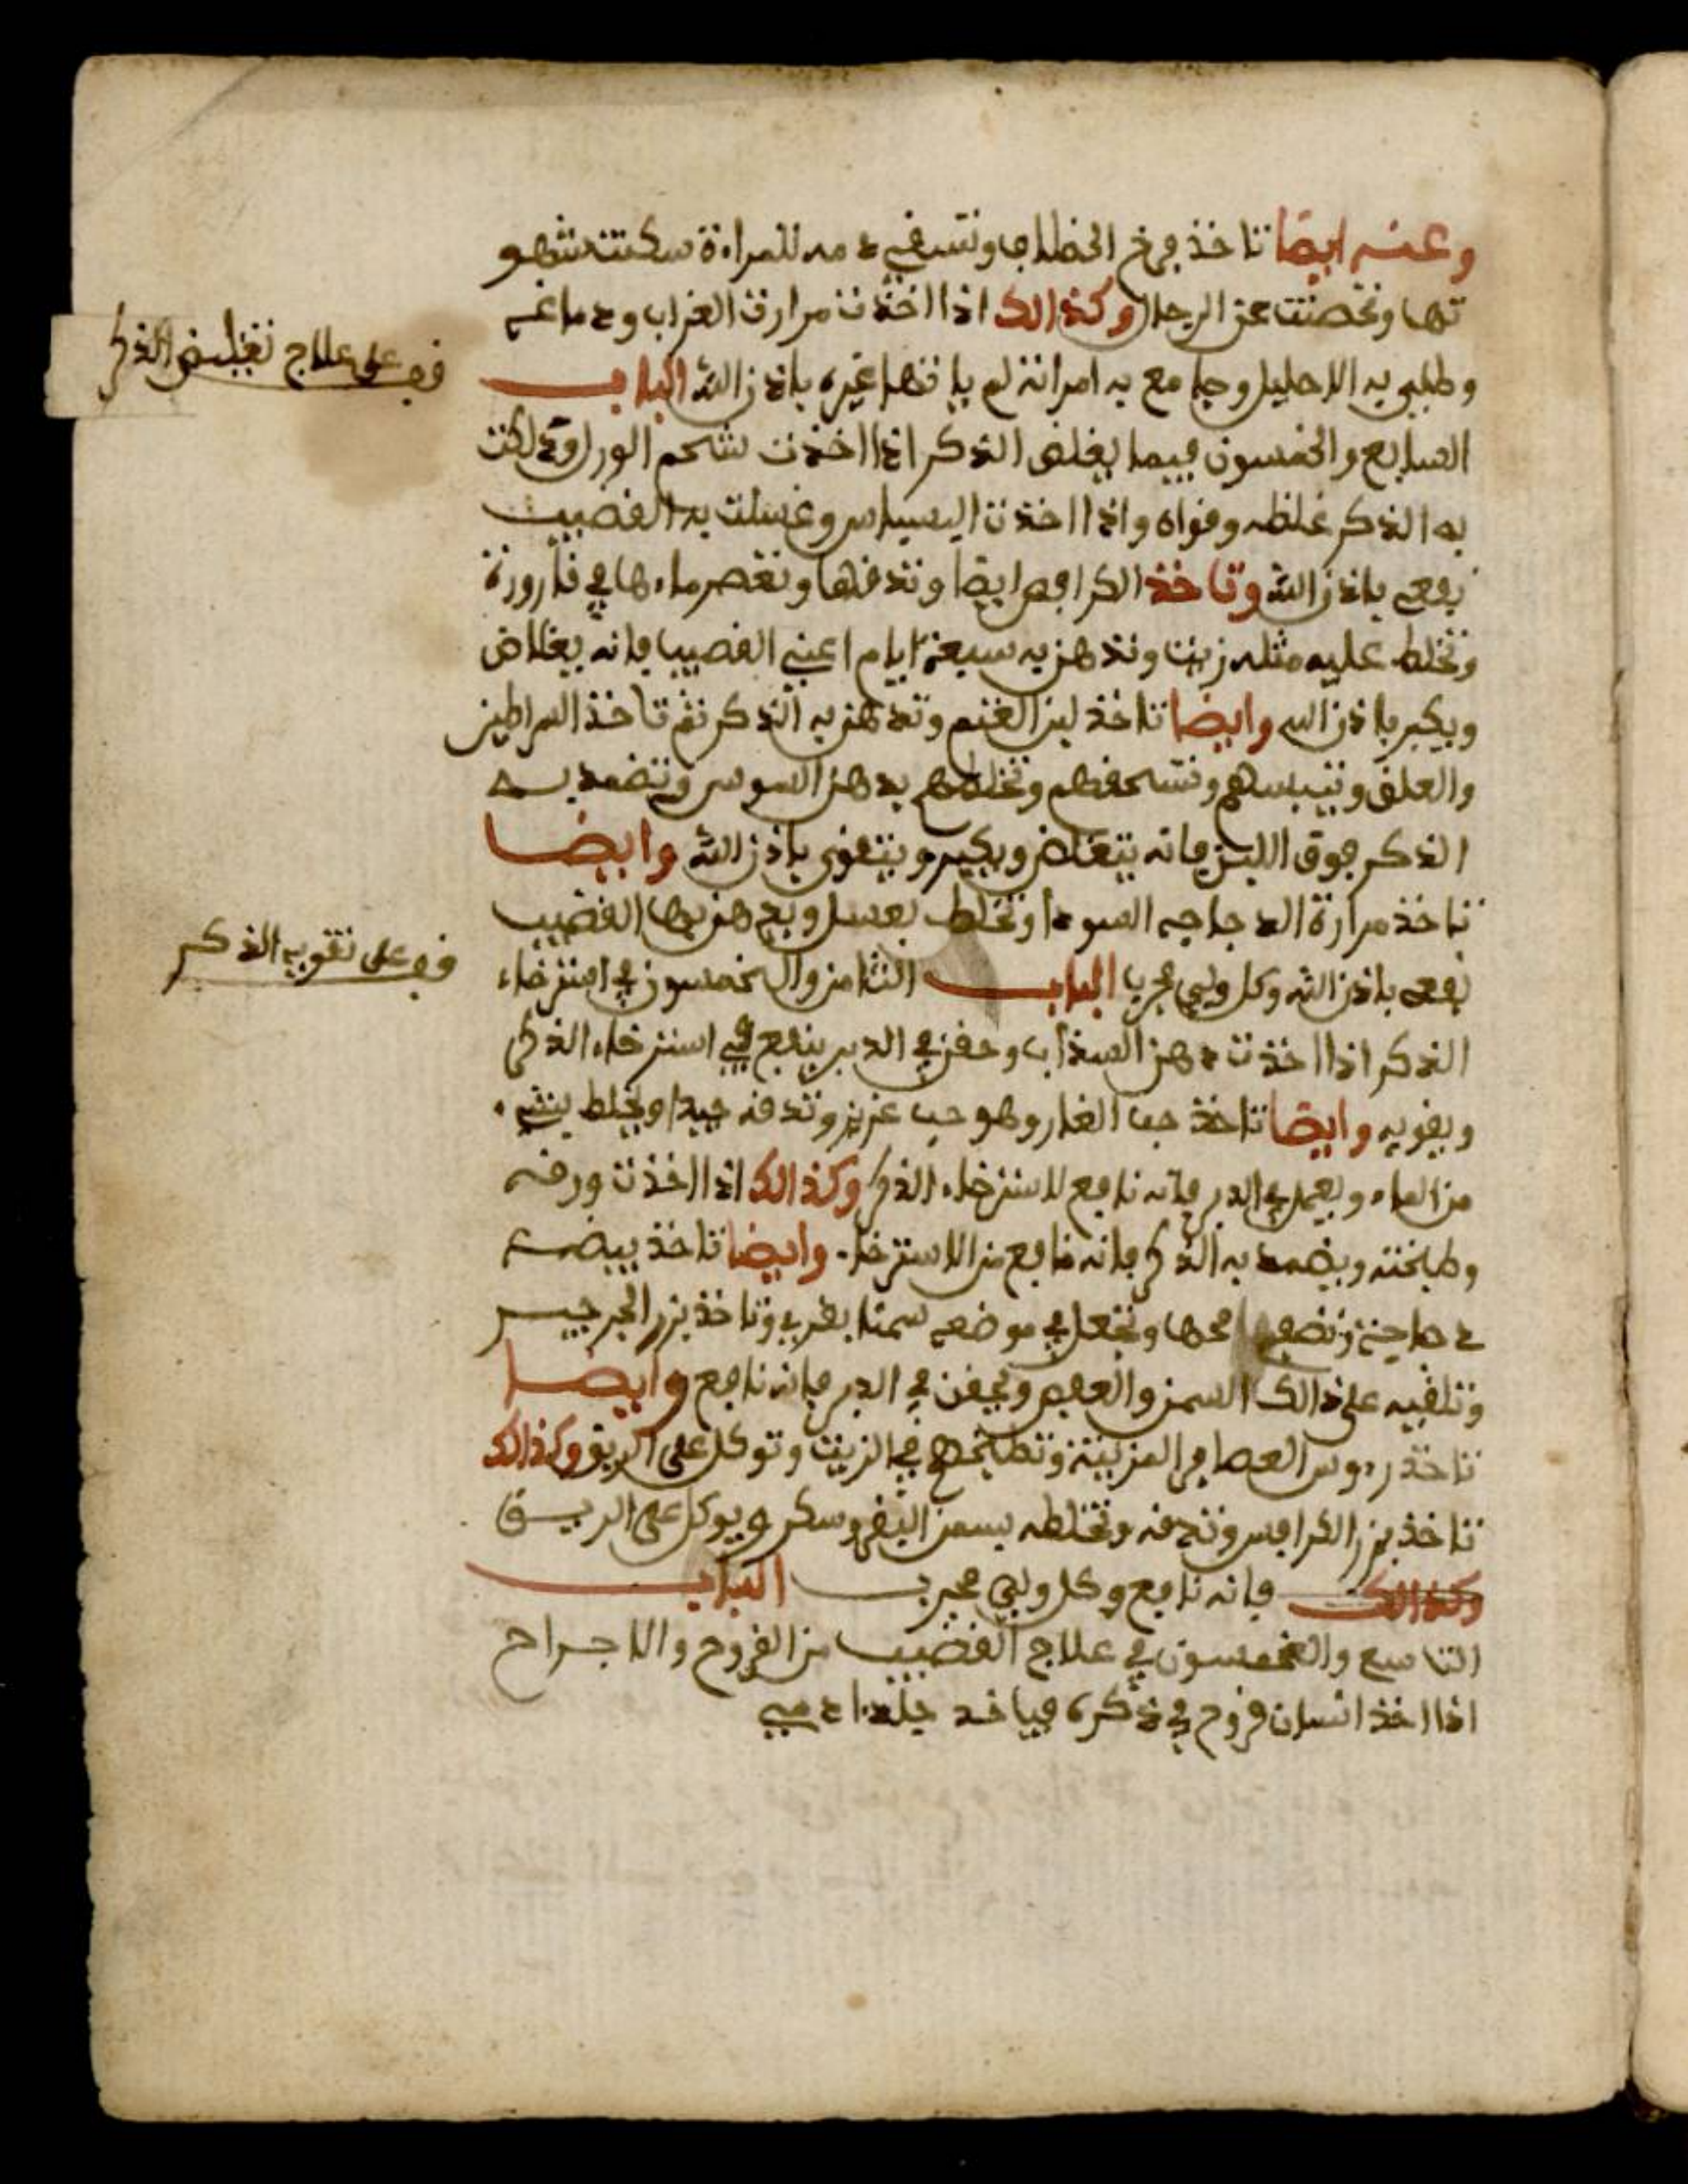 وعنه ايضا تاخذ فرخ الخطاب وتسقي دمه للمراة سكنت شهو
تها وتحصنت عن الرجال وكذالك اذا اخذت مرارة الغراب ودماغه
وطلي به الاحليل وجامع به امراته لم ياتها غيره باذن الله الباب
السابع والخمسون فيما يغلض الذكر اذا اخذت شحم الورل ودلكت
به الذكر غلظه وقواه واذا اخذت البسباس وغسلت به القضيب
نفعه باذن الله وتاخذ الكرافص ايضا وتدقها وتعصر ماءها في قارورة
وتخلط عليه مثله زيت وتدهن به سبعة ايام اعني القضيب فانه يغلاض
ويكبر باذن الله وايضا تاخذ لبن الغنم وتدهن به الذكر ثم تاخذ الخراطين
والعلق وتيبسهم وتسحقهم وتخلطهم بدهن السوس وتضمد به
الذكر فوق اللبن فانه يتغلاض ويكبر ويتقوى باذن الله وايضا
تاخذ مرارة الدجاجه السودا وتخلط بعسل ويدهن بها القضيب
نفعه باذن الله وكل ولبي مجرب الباب الثامن والخمسون في استرخاء
الذكر اذا اخذت دهن السذاب وحقن في الدبر ينفع في استرخاء الذكر
ويقويه وايضا تاخذ حب الغار وهو حب عزيز وتدقه جيدا ويخلط بشيء
من الماء ويعمل في الدبر فانه نافع لاسترخاء الذكر وكذالك اذا اخذت ورقه
وطبخته ويضمد به الذكر فانه نافع من الاسترخاء وايضا تاخذ بيضة
دجاجة وتصفي محها وتجعل في موضعه سمنا بقري وتاخذ بزر الجرجير
وتلقيه على ذالك السمن والعفص ويحقن في الدبر فانه نافع وايضا
تاخذ رءوس العصافر المزبية وتطبخهم في الزيت وتوكل على الريق وكذالك
تاخذ بزر الكرافس وتدقه وتخلطه بسمن البقر وسكر ويوكل على الريق
وكذالك فانه نافع وكل ولبي مجرب الباب
التاسع والخمسون في علاج القضيب من القروح والاجراح
اذا اخذ انسان قروح في ذكره فياخذ جلد ادمي
قف على علاج تغليض الذكر
قف على تقويه الذكر